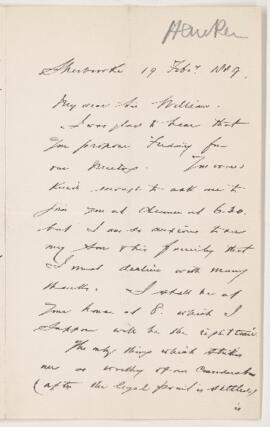 Sherbrooke 19 Feby.
My dear Sir William.
I was glad to hear that
you propose Tuesday for
our meeting. You were
kind enough to ask me to
join you at dinner at 6.30.
but I am so anxious to see
my Son & his family that
I must decline with many
thanks. I shall be at
your house at 8. which I
suppose will be the right time.
The only thing which strikes
me as worthy of our consideration
(after the legal point is settled)
is